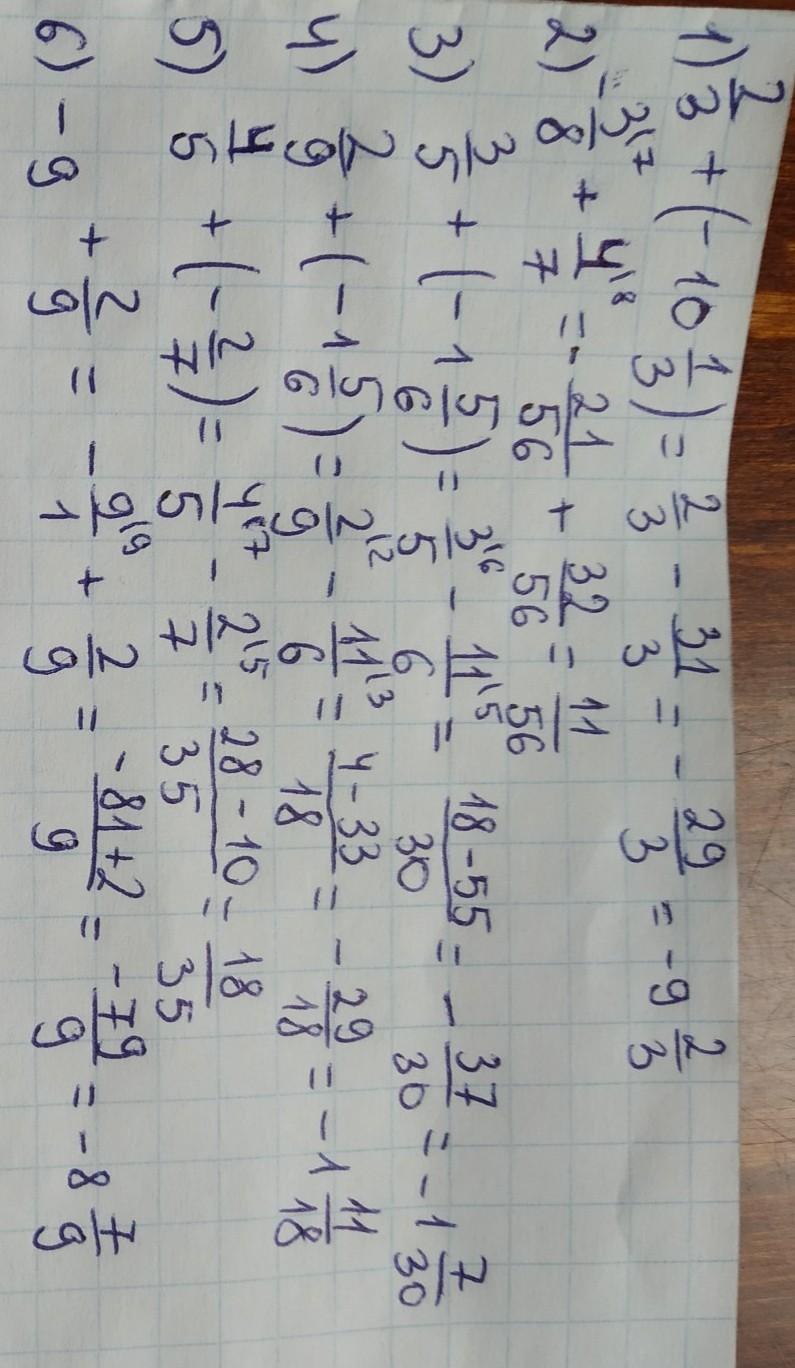 1) 2/3 + (-10 1/3) = 2/3 - 31/3 = - 29/3 = -9 2/3
2) - 3\7/8 + 4\8/7 = - 21/56 + 32/56 = 11/56
3) 3/5 + (-1 5/6) = 3\6/5 - 11\5/6 = 18-55/30 = - 37/30 = -1 7/30
4) 2/9 + (-1 5/6) = 2\2/9 - 11\3/6 = 4-33/18 = - 29/18 = -1 11/18
5) 4/5 + (- 2/7) = 4\7/5 - 2\5/7 = 28-10/35 = 18/35
6) -9 + 2/9 = - 9\9/1 + 2/9 = -81+2/9 = -79/9 = -8 7/9